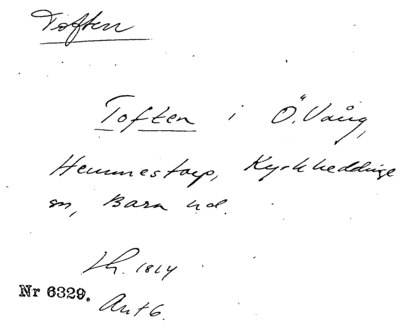 Toften
Toften i Ö. Vång,
Hemmestorp, Kyrkheddinge
sn, Bara hd.
Lh. 1814
Nr 6329. Akt 6.